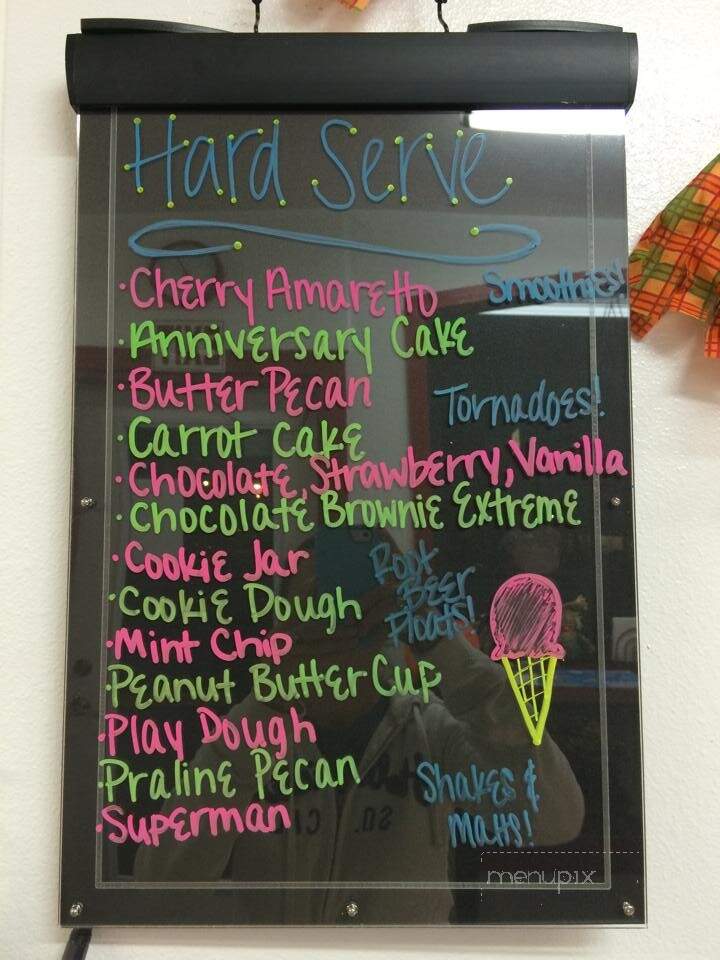 Hard Serve
• Cherry Amaretto
Smoothies!
• Anniversary Cake
• Butter Pecan
Tornadoes!
• Carrot Cake
• Chocolate, Strawberry, Vanilla
• Chocolate Brownie Extreme
• Cookie Jar
Root
Beer
Floats!
• Cookie Dough
• Mint Chip
• Peanut Butter Cup
• Play Dough
• Praline Pecan
Shakes &
Malts!
• Superman
menupix